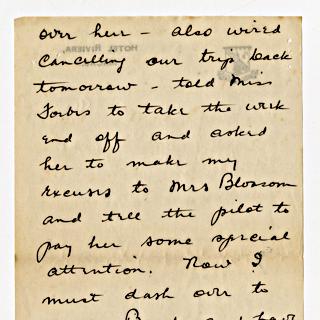 over here - also wired
Cancelling our trip back
tomorrow - told Miss
Forbes to take the week
end off and asked
her to make my
excuses to Mrs Blossom
and tell the pilot to
pay her some special
attention. Now I
must dash over to